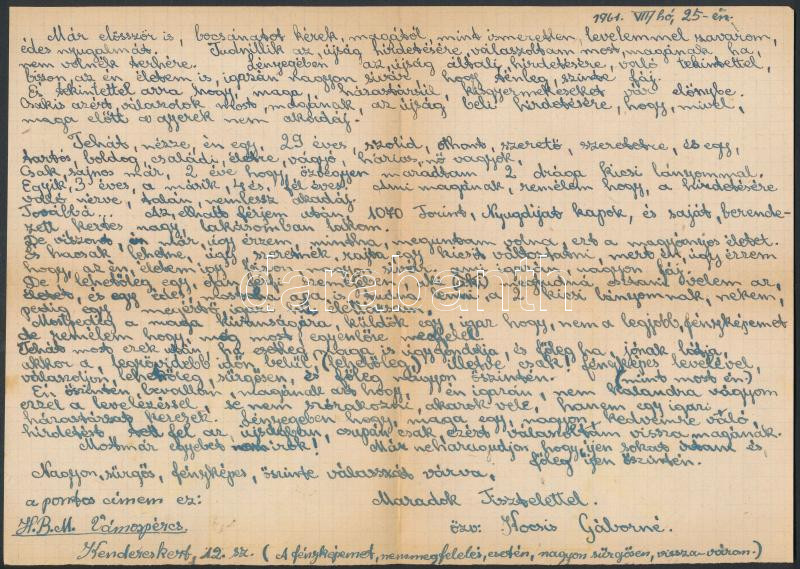 1961. VIII hó, 25-én.
Már elősször is, bocsánatot kérek, magától, mint ismeretlen, levelemmel zavarom,
édes nyugalmát. Tudnillik az, újság hirdetésére, válaszoltam most, magának ha,
nem volnék terhére. Lényegében az, újság általi, hirdetésére, való tekintettel,
bison, az én életem is, igazán nagyon sivár, hogy tényleg, szinte fáj.
Ez tekintettel arra hogy, maga, házastársúl, kisgyermekeseket vár előnybe.
Csakis azért válaszolok most, magának, az újság beli hirdetésére, hogy, mivel,
maga előtt a gyerek nem akadáj.
Tehát, nézze, én egy, 29 éves, szolid, othont, szerető, szeretetre, és egy,
tartós, boldog, családi, életre, vágyó, hárias, nő vagyok.
Csak, sajnos már, 2 éve hogy, özvegyen maradtam 2 drága kicsi lányommal.
Egyik, 3 éves, a másik, 4 és, fél éves. Ami magának, remélem hogy, a hirdetésére
való nézve, talán, nemlessz akadáj.
Továbbá... Az, elhalt férjem után, 1070 Forint, Nyugdijat kapok, és saját, berende-
zett kertes nagy, lakásomban lakom.
De viszont, én már, úgy érzem, mintha, meguntam volna, ezt a magányos életet.
És hacsak, lehetne, úgy, szeretnék, rajta, egy kicsit változtatni, mert én, úgy érzem
hogy, az én, életem így
De, lehetőleg, egy,
életet, és egy édes
pedig egy
Mostpedig a maga kivánságára, küldök egy, igaz hogy, nem a legjobb, fényképemet
de remélem hogy, még most egyenlőre megfelel.
Tehát most ezek után, ha ezeket, maga is úgy gondolja, és főleg ha, jónak látja,
akkor a, legrövidebb időn belül, (lehetőleg) illetve csak! fényképes levelével,
válaszoljon, lehetőleg, sürgősen, és főleg nagyon őszintén. (mint most én.)
Én őszintén bevallom, magának azt hogy, én igazán, nem kalandra vágyom
ezzel a levelezéssel se nem szórakozni, akarok vele, hanem egy igazi
házastársat keresek. Lényegében hogy, maga egy, nagyon kedvemre való,
hirdetést tett fel az, újságban, csupán csak ezért válaszoltam vissza magának.
Mostmár egyebet nemirok! Már neharagudjon, hogy ijen sokat irtam és,
főleg ijen őszintén.
Nagyon, sürgős, fényképes, őszinte válasszát várva,
a pontos címem ez: Maradok Tisztelettel.
H.B.M. Vámospércs. özv: Kocsis Gáborné.
Kendereskert, 12. sz. (A fényképemet, nemmegfelelés, esetén, nagyon sürgősen, vissza-várom.)
darabanth